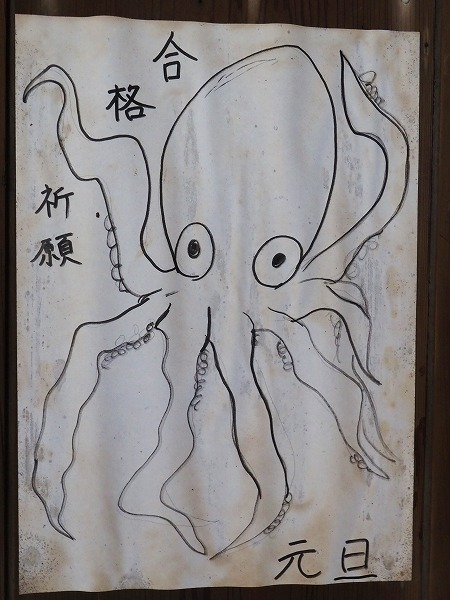 合格
祈願
元旦